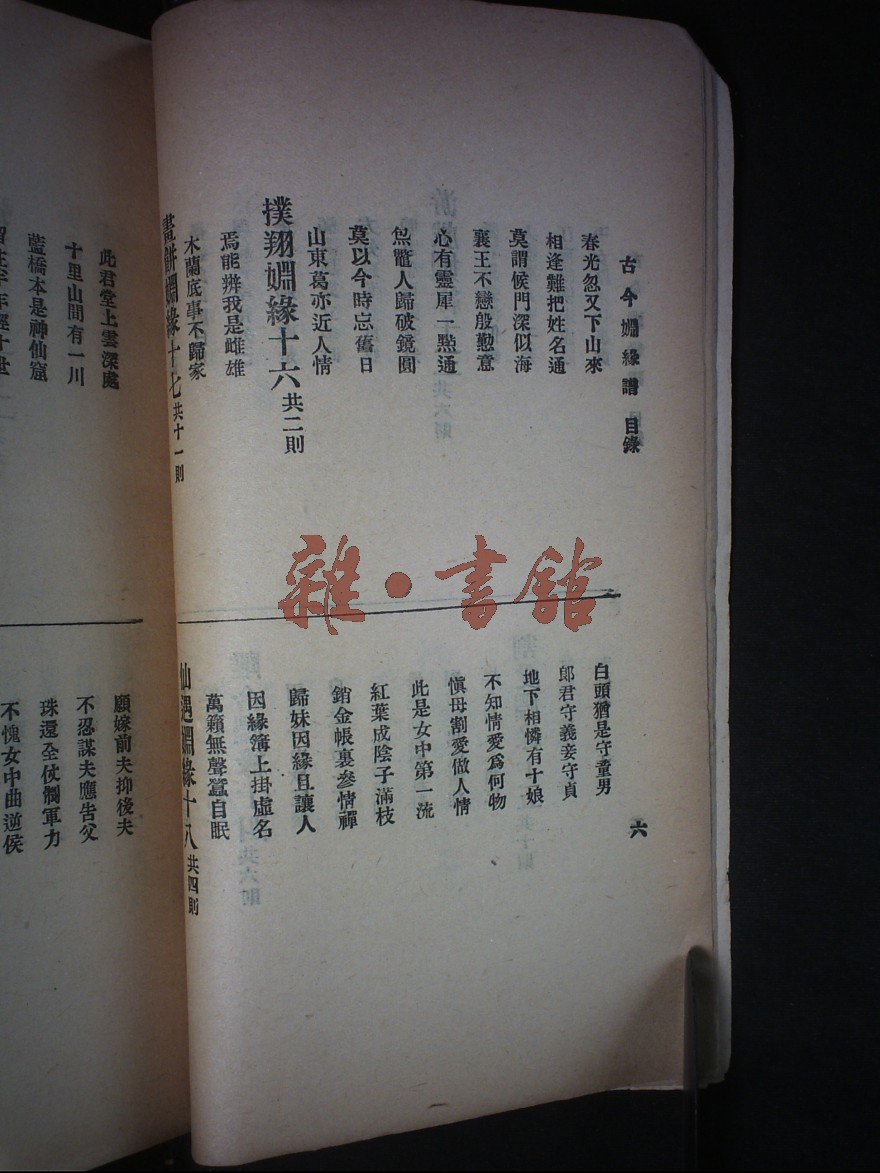 古今婣緣譜 目錄
六
春光忽又下山來
相逢難把姓名通
莫謂候門深似海
襄王不戀殷勤意
心有靈犀一點通
炰鼈人歸破鏡圓
莫以今時忘舊日
山東葛亦近人情
撲翔婣緣十六 共二則
焉能辨我是雌雄
木蘭底事不歸家
畫餅婣緣十七 共十一則
白頭猶是守童男
郎君守義妾守貞
地下相憐有十娘
不知情愛爲何物
愼母割愛做人情
此是女中第一流
紅葉成陰子滿枝
銷金帳裏參情禪
歸妹因緣且讓人
因緣簿上掛虛名
萬籟無聲蠶自眠
仙遇婣緣十八 共四則
此君堂上雲深處
十里山間有一川
藍橋本是神仙窟
願嫁前夫抑後夫
不忍謀夫應告父
珠還全仗髑軍力
不愧女中曲逆侯
雜·書館